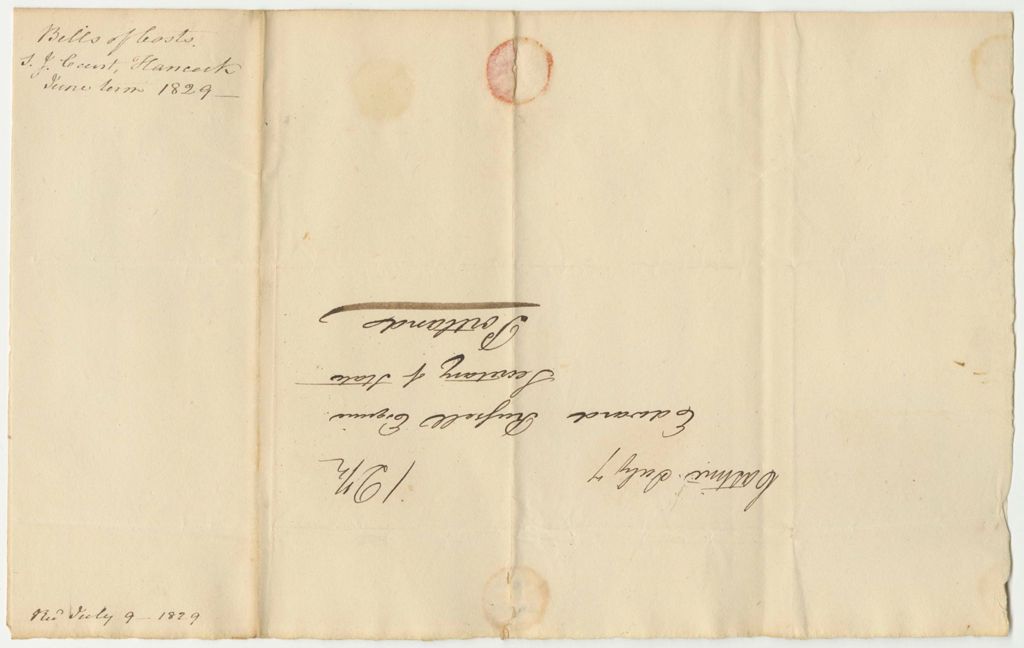 Bills of Costs.
S. J. Court, Hancock
June term 1829
Castine July 7
Edward Russell Esquire
Secretary of State
Portland
Rec July 9 - 1829